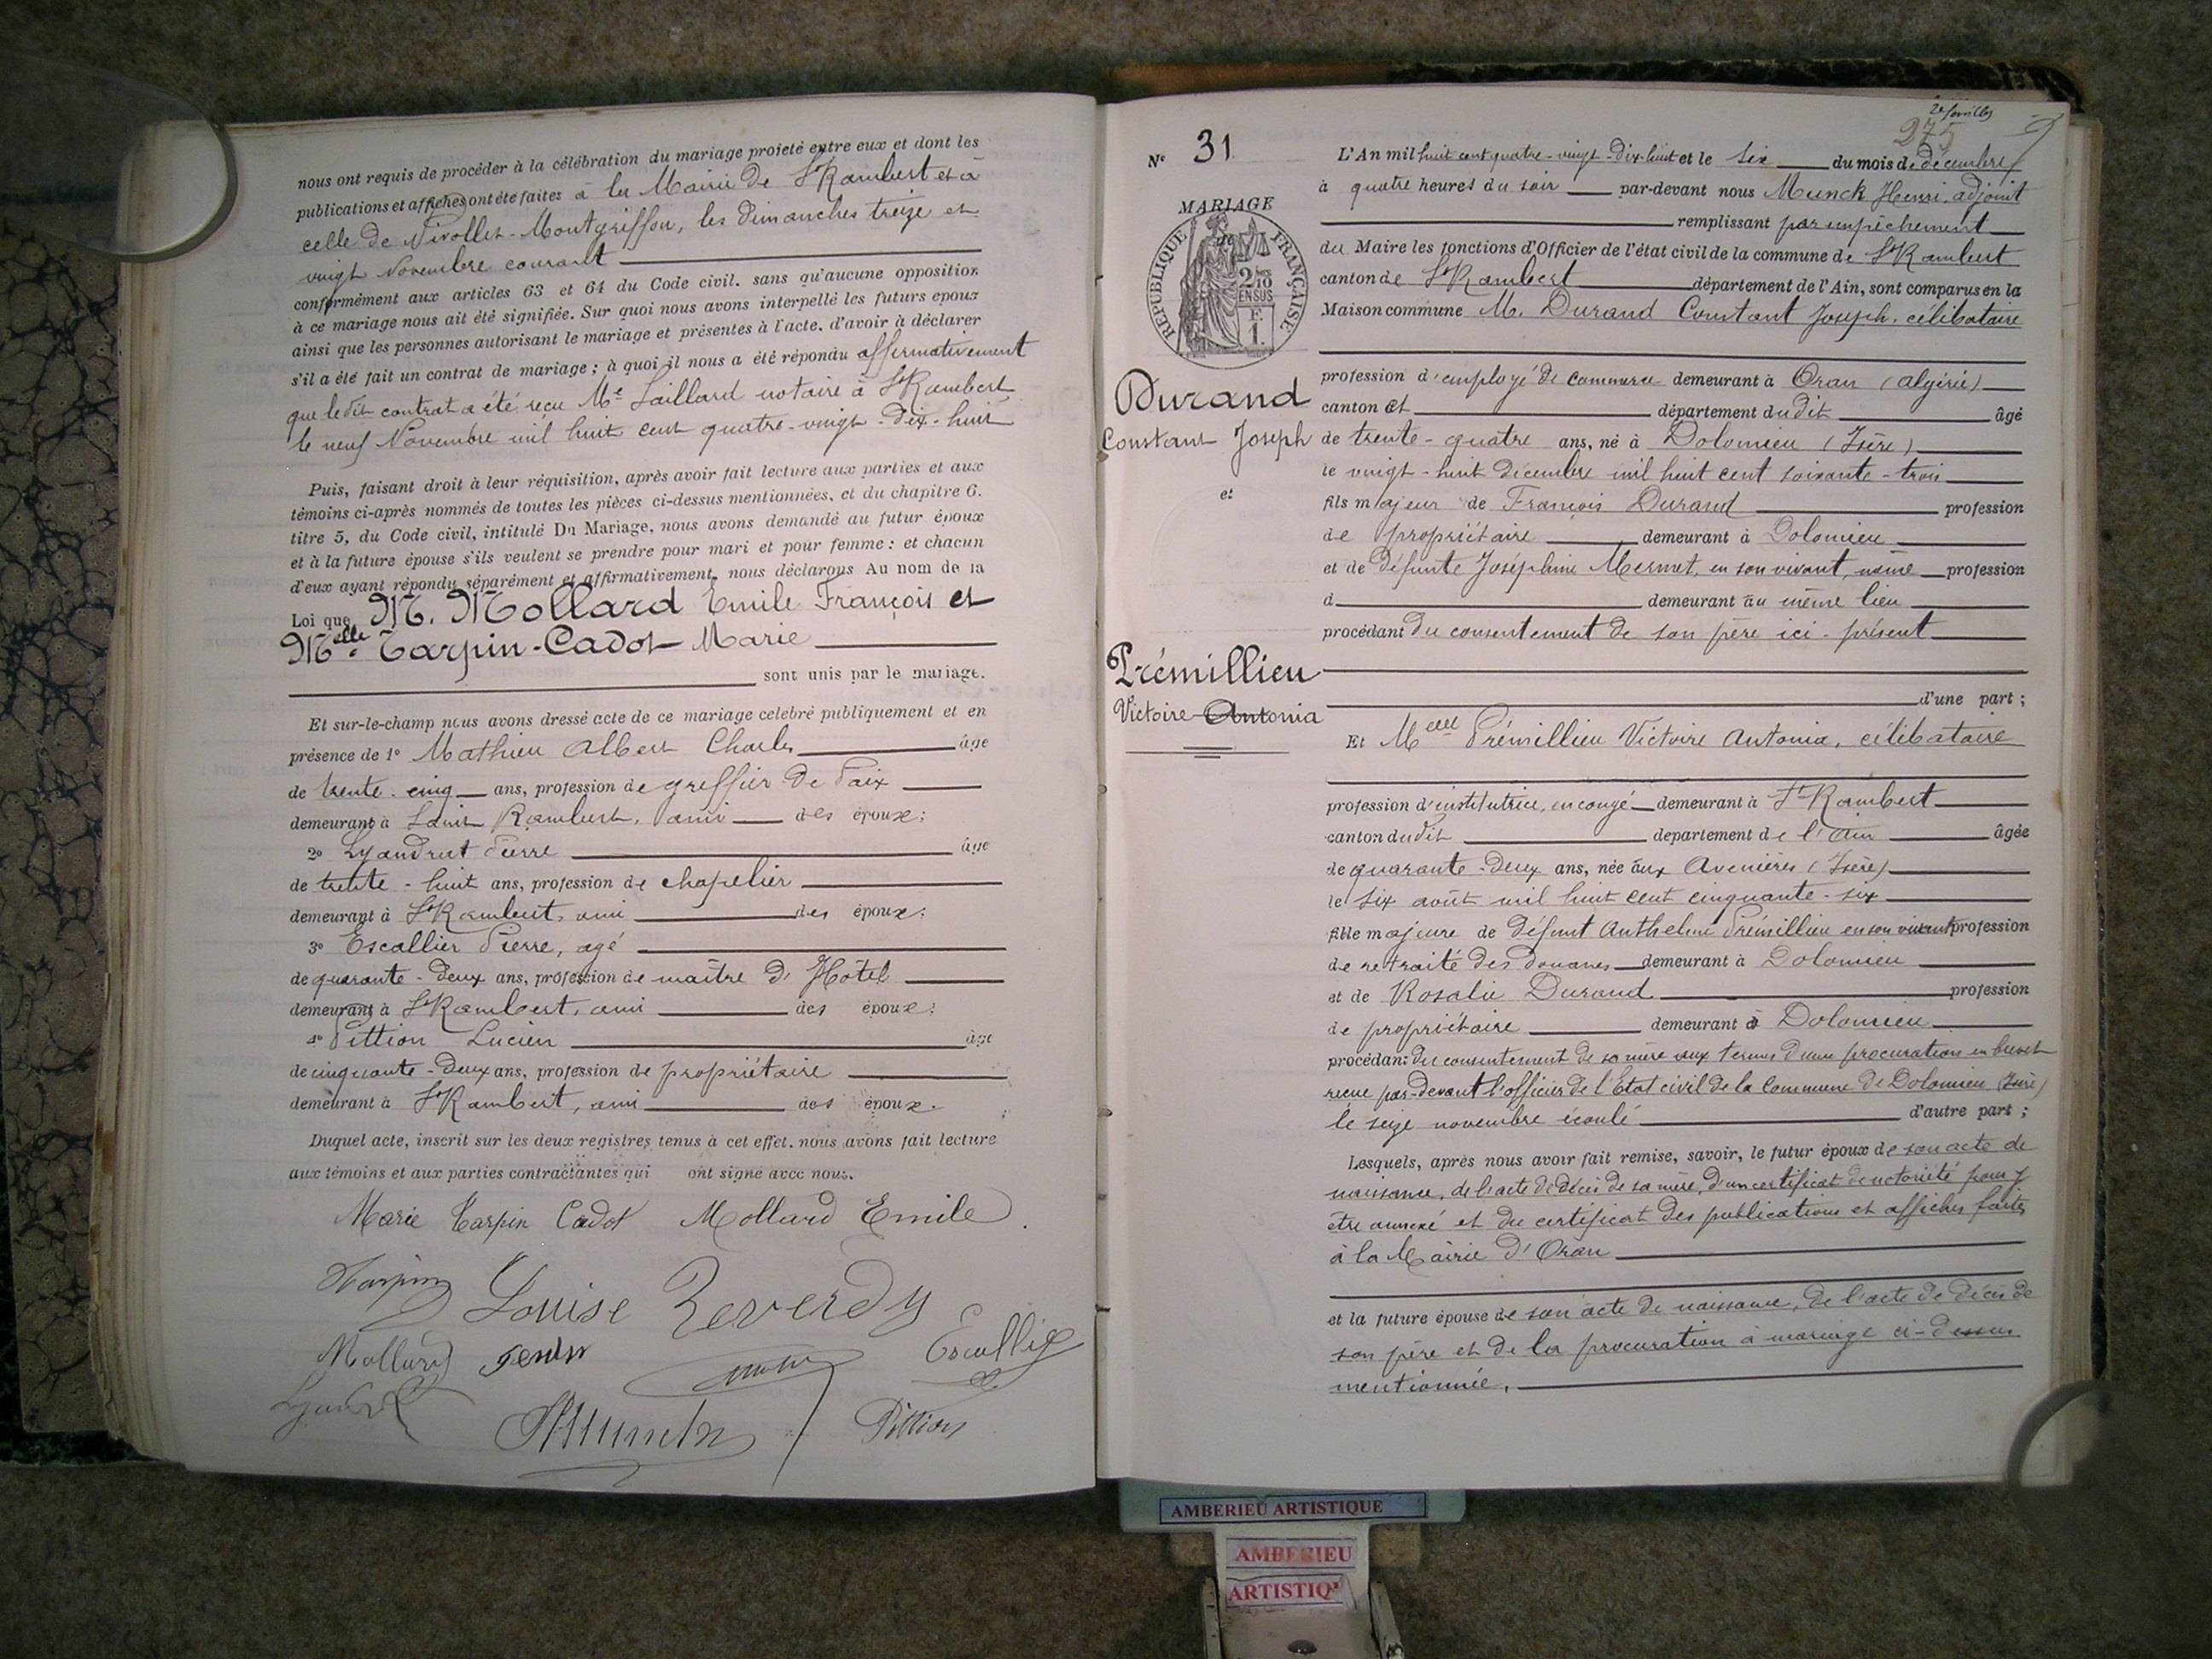 nous ont requis de procéder à la célébration du mariage projeté entre eux et dont les
publications et affiches ont été faites à la Mairie de St Rambert et à
celle de Nivollet-Montgriffon, les dimanches treize et
vingt Novembre courant
conformément aux articles 63 et 64 du Code civil. sans qu'aucune opposition
à ce mariage nous ait été signifiée. Sur quoi nous avons interpellé les futurs époux
ainsi que les personnes autorisant le mariage et présentes à l'acte. d'avoir à déclarer
s'il a été fait un contrat de mariage; à quoi il nous a été répondu affirmativement
que le dit contrat a été reçu Me Laillard notaire à St Rambert
le neuf Novembre mil huit cent quatre-vingt-dix-huit
Puis, faisant droit à leur réquisition, après avoir fait lecture aux parties et aux
témoins ci-après nommés de toutes les pièces ci-dessus mentionnées, et du chapitre 6.
titre 5, du Code civil, intitulé Du Mariage, nous avons demandé au futur époux
et à la future épouse s'ils veulent se prendre pour mari et pour femme: et chacun
d'eux ayant répondu séparément et affirmativement, nous déclarons Au nom de la
Loi que M. Mollard Emile François et
Melle Tarpin-Cadot Marie
sont unis par le mariage.
Et sur-le-champ nous avons dressé acte de ce mariage célébré publiquement et en
présence de 1° Mathieu Albert Charles âge
de trente-cinq ans, profession de greffier de Paix
demeurant à Saint Rambert, ami des époux;
2° Lyandrat Pierre âge
de trente-huit ans, profession de chapelier
demeurant à St Rambert, ami des époux;
3° Escallier Pierre, agé
de quarante-deux ans, profession de maître d'Hôtel
demeurant à St Rambert, ami des époux;
4° Pittion Lucien âge
de cinquante-deux ans, profession de propriétaire
demeurant à St Rambert, ami des époux.
Duquel acte, inscrit sur les deux registres tenus à cet effet. nous avons fait lecture
aux témoins et aux parties contractantes qui ont signé avec nous.
Marie Tarpin Cadot Mollard Emile
Tarpin Louise Reverdy
Mollard Escallier
HMunck Pittion
275
N° 31
MARIAGE
RÉPUBLIQUE FRANÇAISE
2/10 EN SUS
F. 1.
Durand
Constant Joseph
et
Prémillieu
Victoire Antonia
L'An mil huit cent quatre-vingt-dix-huit et le six du mois de décembre
à quatre heures du soir par-devant nous Munck Henri, adjoint
remplissant par empêchement
du Maire les fonctions d'Officier de l'état civil de la commune de St Rambert
canton de St Rambert département de l'Ain, sont comparus en la
Maison commune M. Durand Constant Joseph, célibataire
profession d'employé de commerce demeurant à Oran (Algérie)
canton et département du dit âgé
de trente-quatre ans, né à Dolomieu (Isère)
le vingt-huit décembre mil huit cent soixante-trois
fils majeur de François Durand profession
de propriétaire demeurant à Dolomieu
et de défunte Joséphine Mermet, en son vivant, même profession
d demeurant au même lieu
procédant du consentement de son père ici-présent
d'une part;
Et Melle Prémillieu Victoire Antonia, célibataire
profession d'institutrice, en congé demeurant à St Rambert
canton du dit département de l'Ain âgée
de quarante-deux ans, née aux Avenières (Isère)
le six août mil huit cent cinquante-six
fille majeure de défunt Anthelme Prémillieu en son vivant profession
de retraité des douanes demeurant à Dolomieu
et de Rosalie Durand profession
de propriétaire demeurant à Dolomieu
procédant du consentement de sa mère aux termes d'une procuration en brevet
reçue par-devant l'officier de l'État civil de la Commune de Dolomieu (Isère)
le seize novembre écoulé d'autre part;
Lesquels, après nous avoir fait remise, savoir, le futur époux de son acte de
naissance, de l'acte de décès de sa mère, d'un certificat de notoriété pour y
être annexé et du certificat des publications et affiches faites
à la Mairie d'Oran
et la future épouse de son acte de naissance, de l'acte de décès de
son père et de la procuration à mariage ci-dessus
mentionnée.
AMBERIEU ARTISTIQUE
AMBERIEU
ARTISTIQ